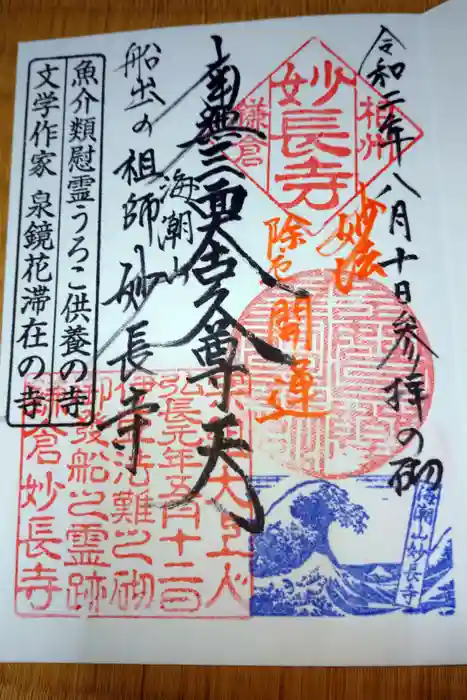 令和二年八月十日参拝の砌
相州
妙長寺
鎌倉
妙法
除厄開運
南無三面大黒尊天
海潮山
船出の祖師 妙長寺
魚介類慰霊うろこ供養の寺
文学作家 泉鏡花滞在の寺
大上人
弘長元年五月十二日
伊豆法難之砌
御發船之霊跡
鎌倉妙長寺
海潮山妙長寺